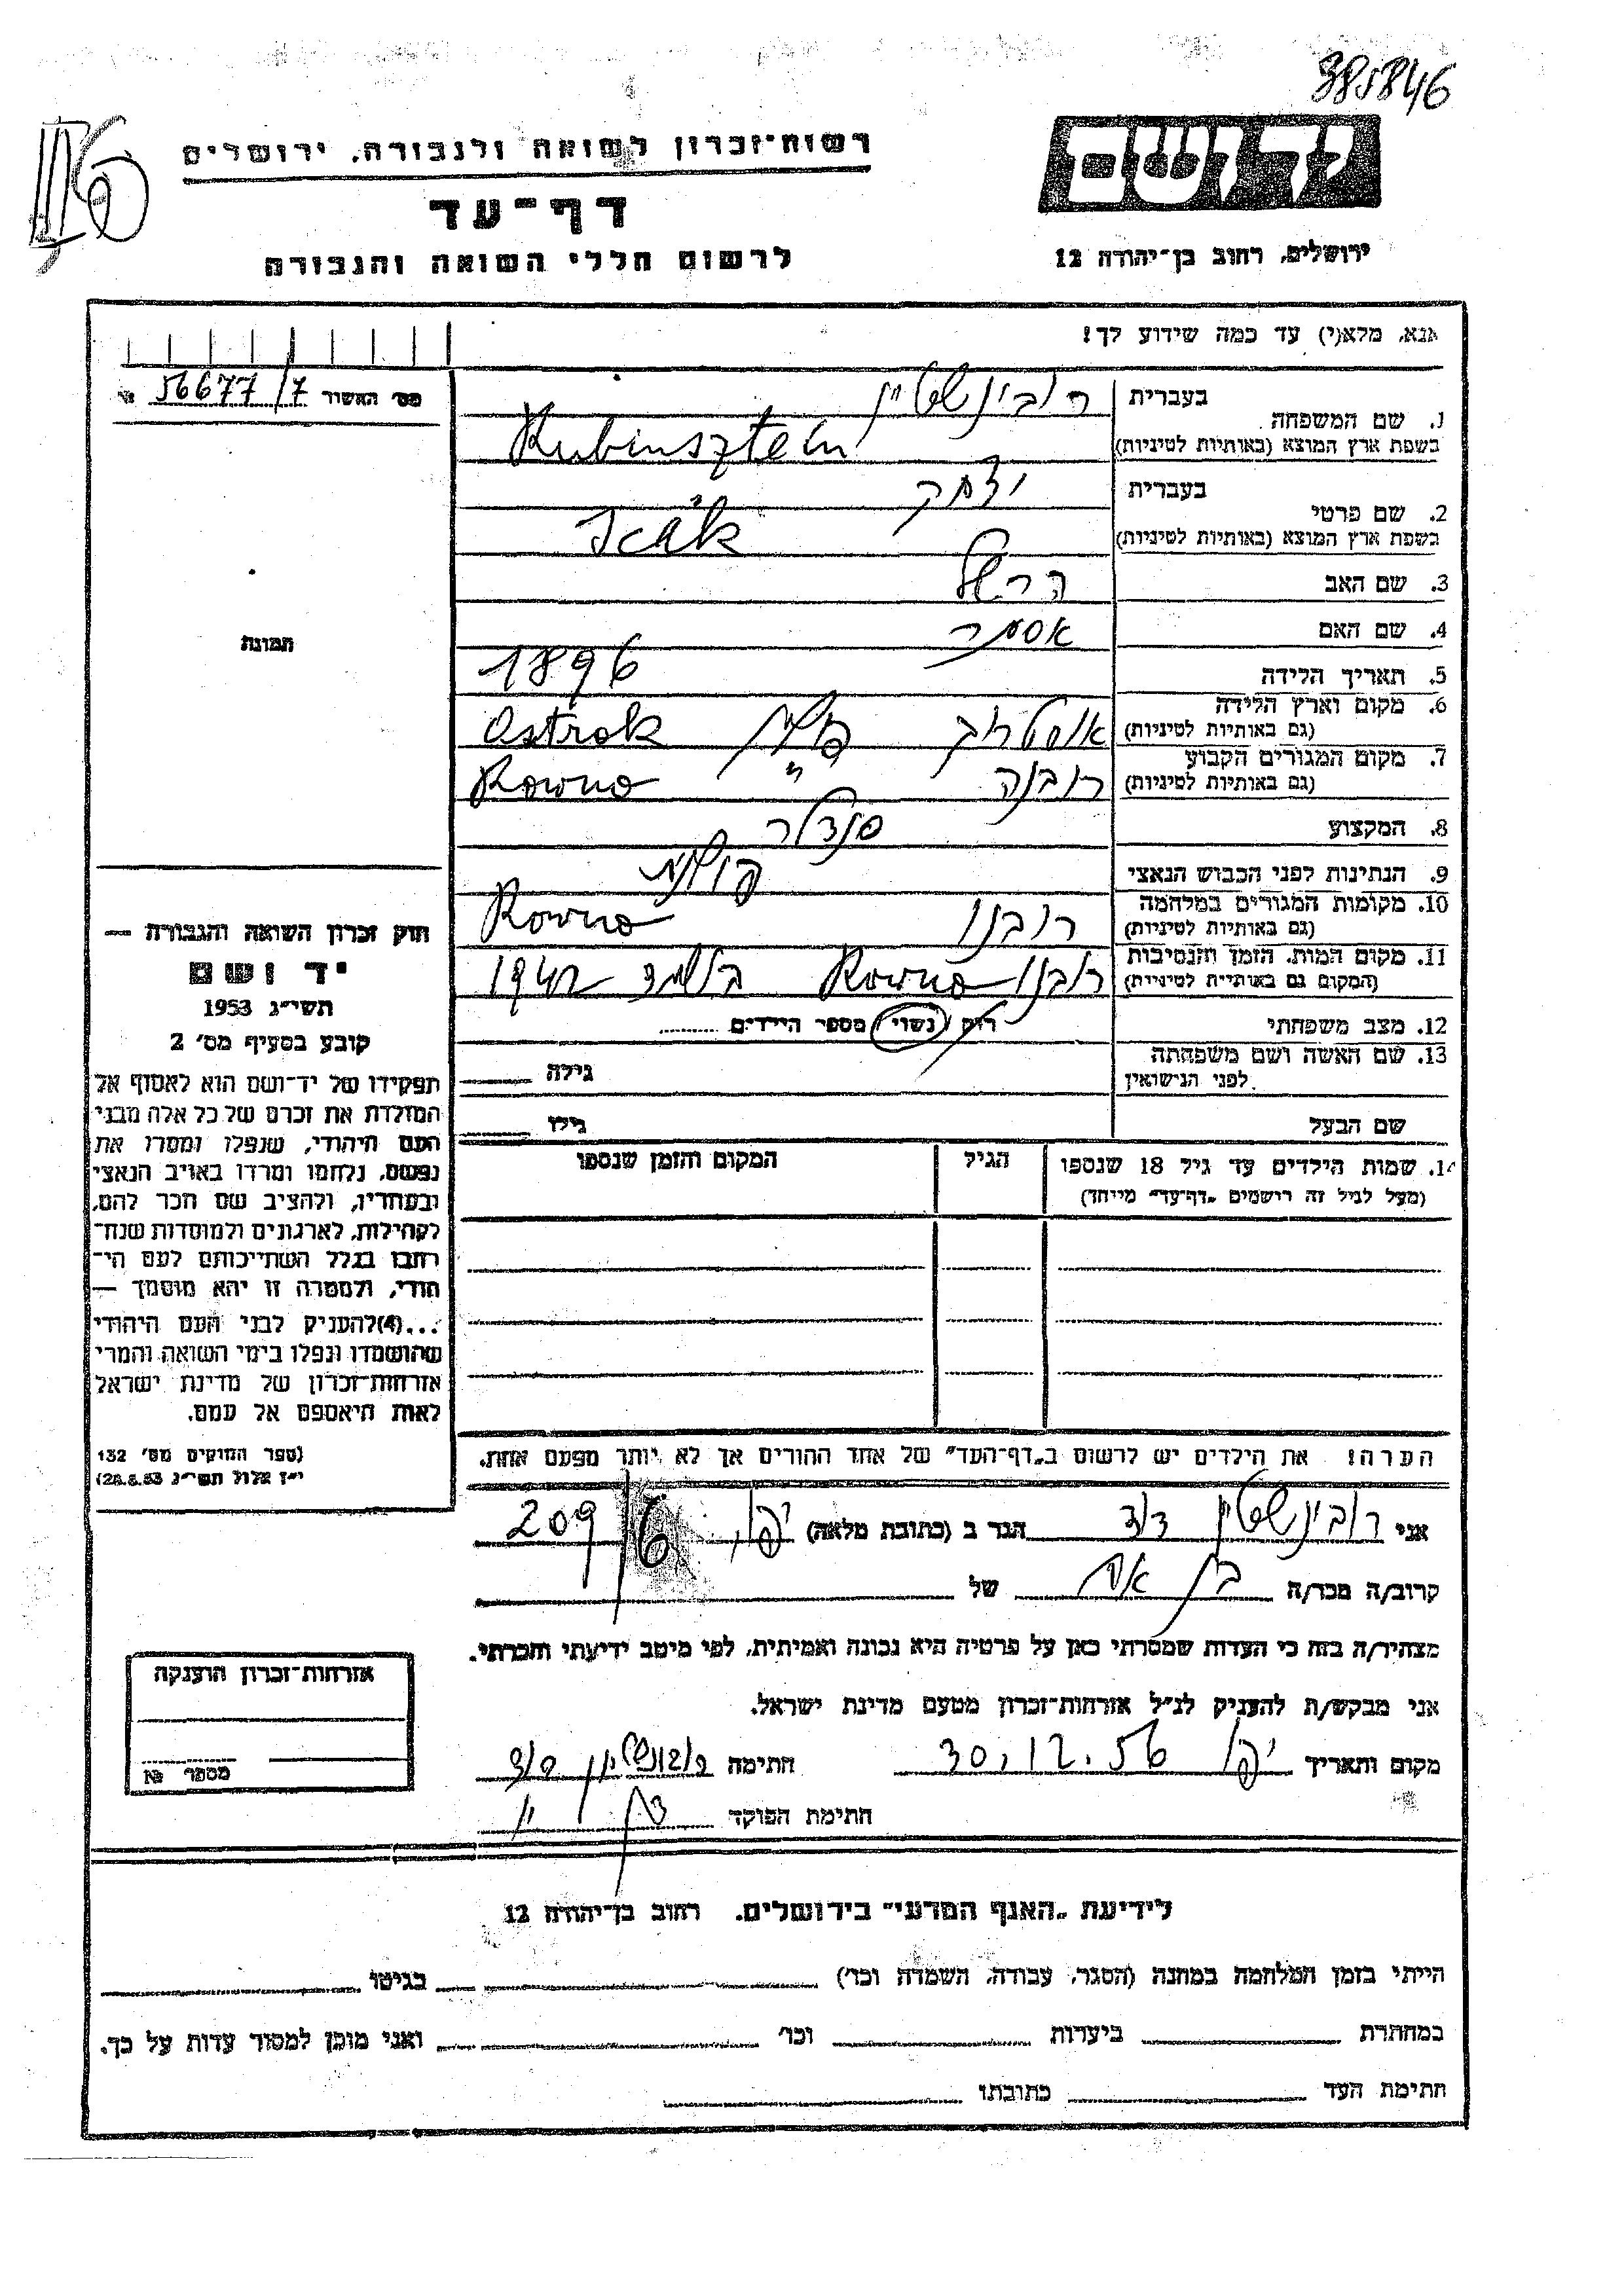 385846
רשות־זכרון לשואה ולגבורה, ירושלים
דף־עד
לרשום חללי השואה והגבורה
יד ושם
ירושלים, רחוב בן־יהודה 12
אנא, מלא(י) עד כמה שידוע לך!
מס׳ האשור 56677/7
1. שם המשפחה בעברית רובינשטיין
בשפת ארץ המוצא (באותיות לטיניות) Rubinsztein
2. שם פרטי בעברית יצחק
בשפת ארץ המוצא (באותיות לטיניות) Icák
3. שם האב הרשל
4. שם האם אסתר
5. תאריך הלידה 1896
6. מקום וארץ הלידה
(גם באותיות לטיניות) פולין Ostrok
7. מקום המגורים הקבוע
(גם באותיות לטיניות) רובנה " Rowno
8. המקצוע סנדלר
9. הנתינות לפני הכבוש הנאצי פולנית
10. מקומות המגורים במלחמה
(גם באותיות לטיניות) רובנו Rowno
11. מקום המות, הזמן והנסיבות
(המקום גם באותיות לטיניות) רובנו Rowno 1941
12. מצב משפחתי רווק / נשוי / מספר הילדים
13. שם האשה ושם משפחתה
לפני הנישואין גילה
שם הבעל גילו
14. שמות הילדים עד גיל 18 שנספו הגיל המקום והזמן שנספו
(מעל לגיל זה רושמים „דף־עד" מייחד)
תמונה
חוק זכרון השואה והגבורה —
יד ושם
תשי״ג 1953
קובע בסעיף מס׳ 2
תפקידו של יד־ושם הוא לאסוף אל
המולדת את זכרם של כל אלה מבני
העם היהודי, שנפלו ומסרו את
נפשם, נלחמו ומרדו באויב הנאצי
ובעוזריו, ולהציב שם וזכר להם,
לקהילות, לארגונים ולמוסדות שנח־
רבו בגלל השתייכותם לעם הי־
הודי, ולמטרה זו יהא מוסמך —
...(4)להעניק לבני העם היהודי
שהושמדו ונפלו בימי השואה והמרי
אזרחות־זכרון של מדינת ישראל
לאות היאספם אל עמם.
(ספר החוקים מס׳ 132
י״ז אלול תשי״ג 28.8.53)
הערה! את הילדים יש לרשום ב„דף־העד" של אחד ההורים אך לא יותר מפעם אחת.
אני רובינשטיין דוד הגר ב (כתובת מלאה) יפו, 209/6
קרוב/ה מכר/ה בן אח של
מצהיר/ה בזה כי העדות שמסרתי כאן על פרטיה היא נכונה ואמיתית, לפי מיטב ידיעתי והכרתי.
אני מבקש/ת להעניק לנ״ל אזרחות־זכרון מטעם מדינת ישראל.
מקום ותאריך יפו 30.12.56 חתימה רובינשטיין דוד
חתימת הפוקד
אזרחות־זכרון הוענקה
מספר №
לידיעת „האגף המדעי" בירושלים, רחוב בן־יהודה 12
הייתי בזמן המלחמה במחנה (הסגר, עבודה, השמדה וכו׳) בגיטו
במחתרת ביערות וכו׳ ואני מוכן למסור עדות על כך.
חתימת העד כתובתו